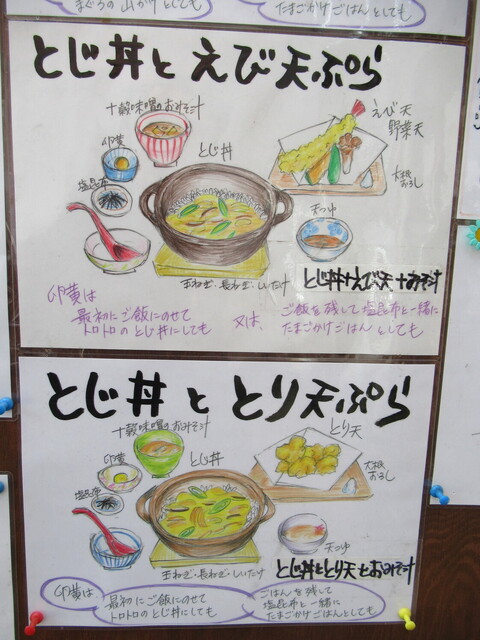 まぐろの山かけとしても
たまごかけごはんとしても
とじ丼と えび天ぷら
十穀味噌のおみそ汁
えび天
野菜天
卵黄
とじ丼
大根
おろし
塩昆布
天つゆ
玉ねぎ・長ねぎ・しいたけ
とじ丼+えび天+おみそ汁
卵黄は
最初にご飯にのせて
トロトロのとじ丼にしても
又は、
ご飯を残して塩昆布と一緒に
たまごかけごはんとしても
とじ丼 と とり天ぷら
十穀味噌のおみそ汁
とり天
卵黄
とじ丼
大根
おろし
塩昆布
天つゆ
玉ねぎ・長ねぎ・しいたけ
とじ丼ととり天とおみそ汁
卵黄は
最初にご飯にのせて
トロトロのとじ丼にしても
ごはんを残して
塩昆布と一緒に
たまごかけごはんとしても